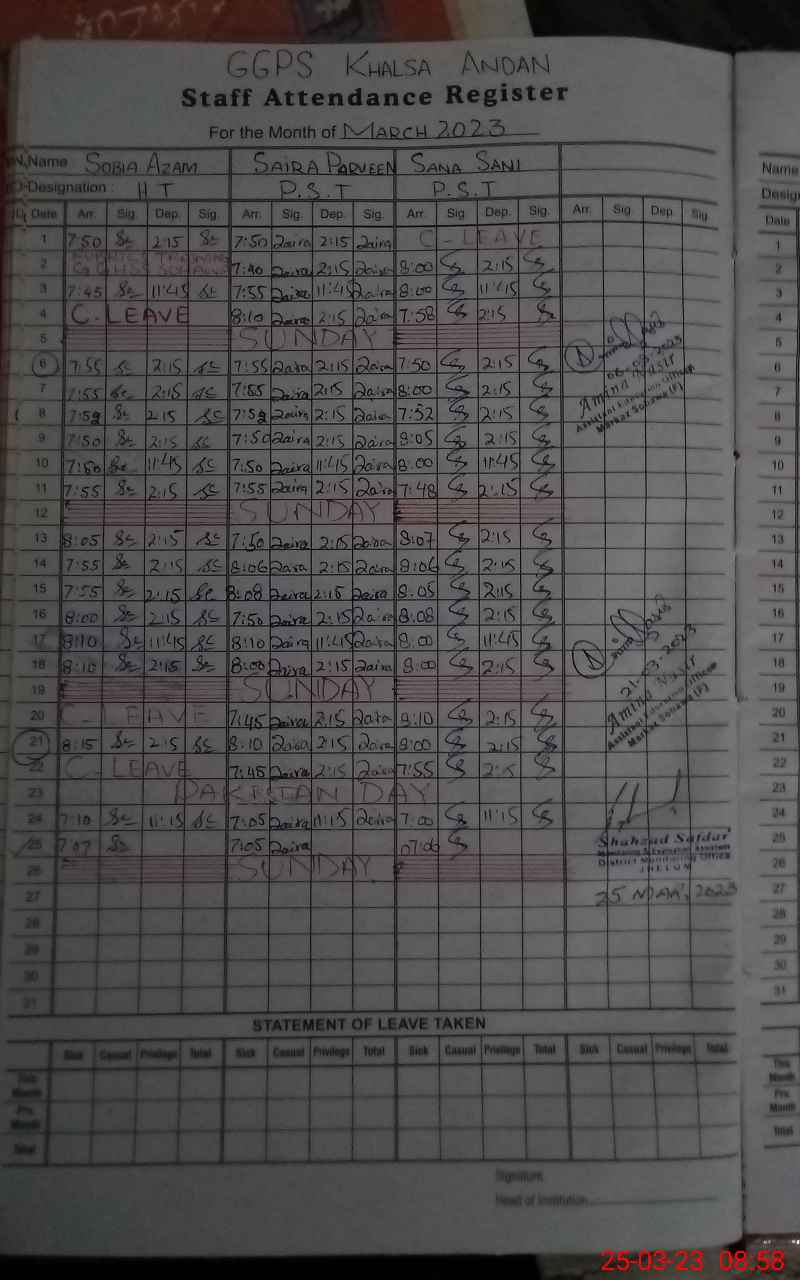 GGPS KHALSA ANDAN
Staff Attendance Register
For the Month of MARCH 2023
Name SOBIA AZAM SAIRA PARVEEN SANA SANI Name
Designation : H T P.S.T P.S.T
Date Arr. Sig. Dep. Sig. Arr. Sig. Dep. Sig. Arr. Sig. Dep. Sig. Arr. Sig. Dep. Sig. Date
1 7:50 Sc 2:15 Sc 7:50 Saira 2:15 Saira C-LEAVE 1
2 7:40 Saira 2:15 Saira 8:00 2:15 2
3 7:45 Sc 11:45 Sc 7:55 Saira 11:45 Saira 8:00 11:45 3
4 C.LEAVE 8:10 Saira 2:15 Saira 7:58 2:15 4
5 SUNDAY 5
6 7:55 Sc 2:15 Sc 7:55 Saira 2:15 Saira 7:50 2:15 6
7 7:55 Sc 2:15 Sc 7:55 Saira 2:15 Saira 8:00 2:15 7
8 Sc 2:15 Sc Saira 2:15 Saira 7:52 2:15 8
9 7:50 Sc 2:15 Sc 7:50 Saira 2:15 Saira 8:05 2:15 9
10 7:50 Sc 11:45 Sc 7:50 Saira 11:45 Saira 8:00 11:45 10
11 7:55 Sc 2:15 Sc 7:55 Saira 2:15 Saira 7:48 2:15 11
12 SUNDAY 12
13 8:05 Sc 2:15 Sc 7:50 Saira 2:15 Saira 8:07 2:15 13
14 7:55 Sc 2:15 Sc 8:06 Saira 2:15 Saira 8:06 2:15 14
15 7:55 Sc 2:15 Sc 8:08 Saira 2:15 Saira 8:05 2:15 15
16 8:00 Sc 2:15 Sc 7:50 Saira 2:15 Saira 8:08 2:15 16
17 8:10 Sc 11:45 Sc 8:10 Saira 11:45 Saira 8:00 11:45 17
18 8:10 Sc 2:15 Sc 8:00 Saira 2:15 Saira 8:00 2:15 18
19 SUNDAY 19
20 C-LEAVE 7:45 Saira 2:15 Saira 8:10 2:15 20
21 8:15 Sc 2:15 Sc 8:10 Saira 2:15 Saira 8:00 2:15 21
22 C-LEAVE 7:45 Saira 2:15 Saira 7:55 2:15 22
23 PAKISTAN DAY 23
24 7:10 Sc 11:15 Sc 7:05 Saira 11:15 Saira 7:00 11:15 24
25 7:07 Sc 7:05 Saira 07:06 25
26 SUNDAY 26
27 27
28 28
29 29
30 30
31 31
06-03-2023
Amina Nasir
Assistant Education Officer
Markaz Sohawa (F)
21-03-2023
Amina Nasir
Assistant Education Officer
Markaz Sohawa (F)
Shahzad Safdar
Monitoring & Evaluation Assistant
District Monitoring Office
JHELUM
25 MAR, 2023
STATEMENT OF LEAVE TAKEN
Sick Casual Privilege Total Sick Casual Privilege Total Sick Casual Privilege Total Sick Casual Privilege Total
This Month This Month
Pre. Month Pre. Month
Total Total
Signature
Head of Institution
25-03-23 08:58